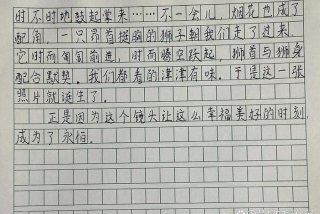 时不时地鼓起掌来……不一会儿，烟花也成了
配角，一只昂首挺胸的狮子朝我们走了过来，
它时而匍匐前进，时而腾空跃起，狮首与狮身
配合默契。我们都看的津津有味。于是这一张
照片就诞生了。
正是因为这个镜头让这么幸福美好的时刻，
成为了永恒。